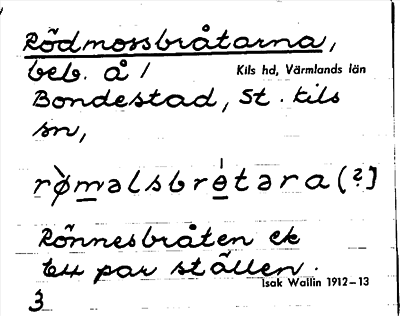 Rödmossbråtarna,
beb. å /
Kils hd, Värmlands län
Bondestad, St. Kils
sn,
rø̀m̲əlsbrė̲təra (?]
Rönnesbråten ek
ett par ställen.
Isak Wallin 1912–13
3